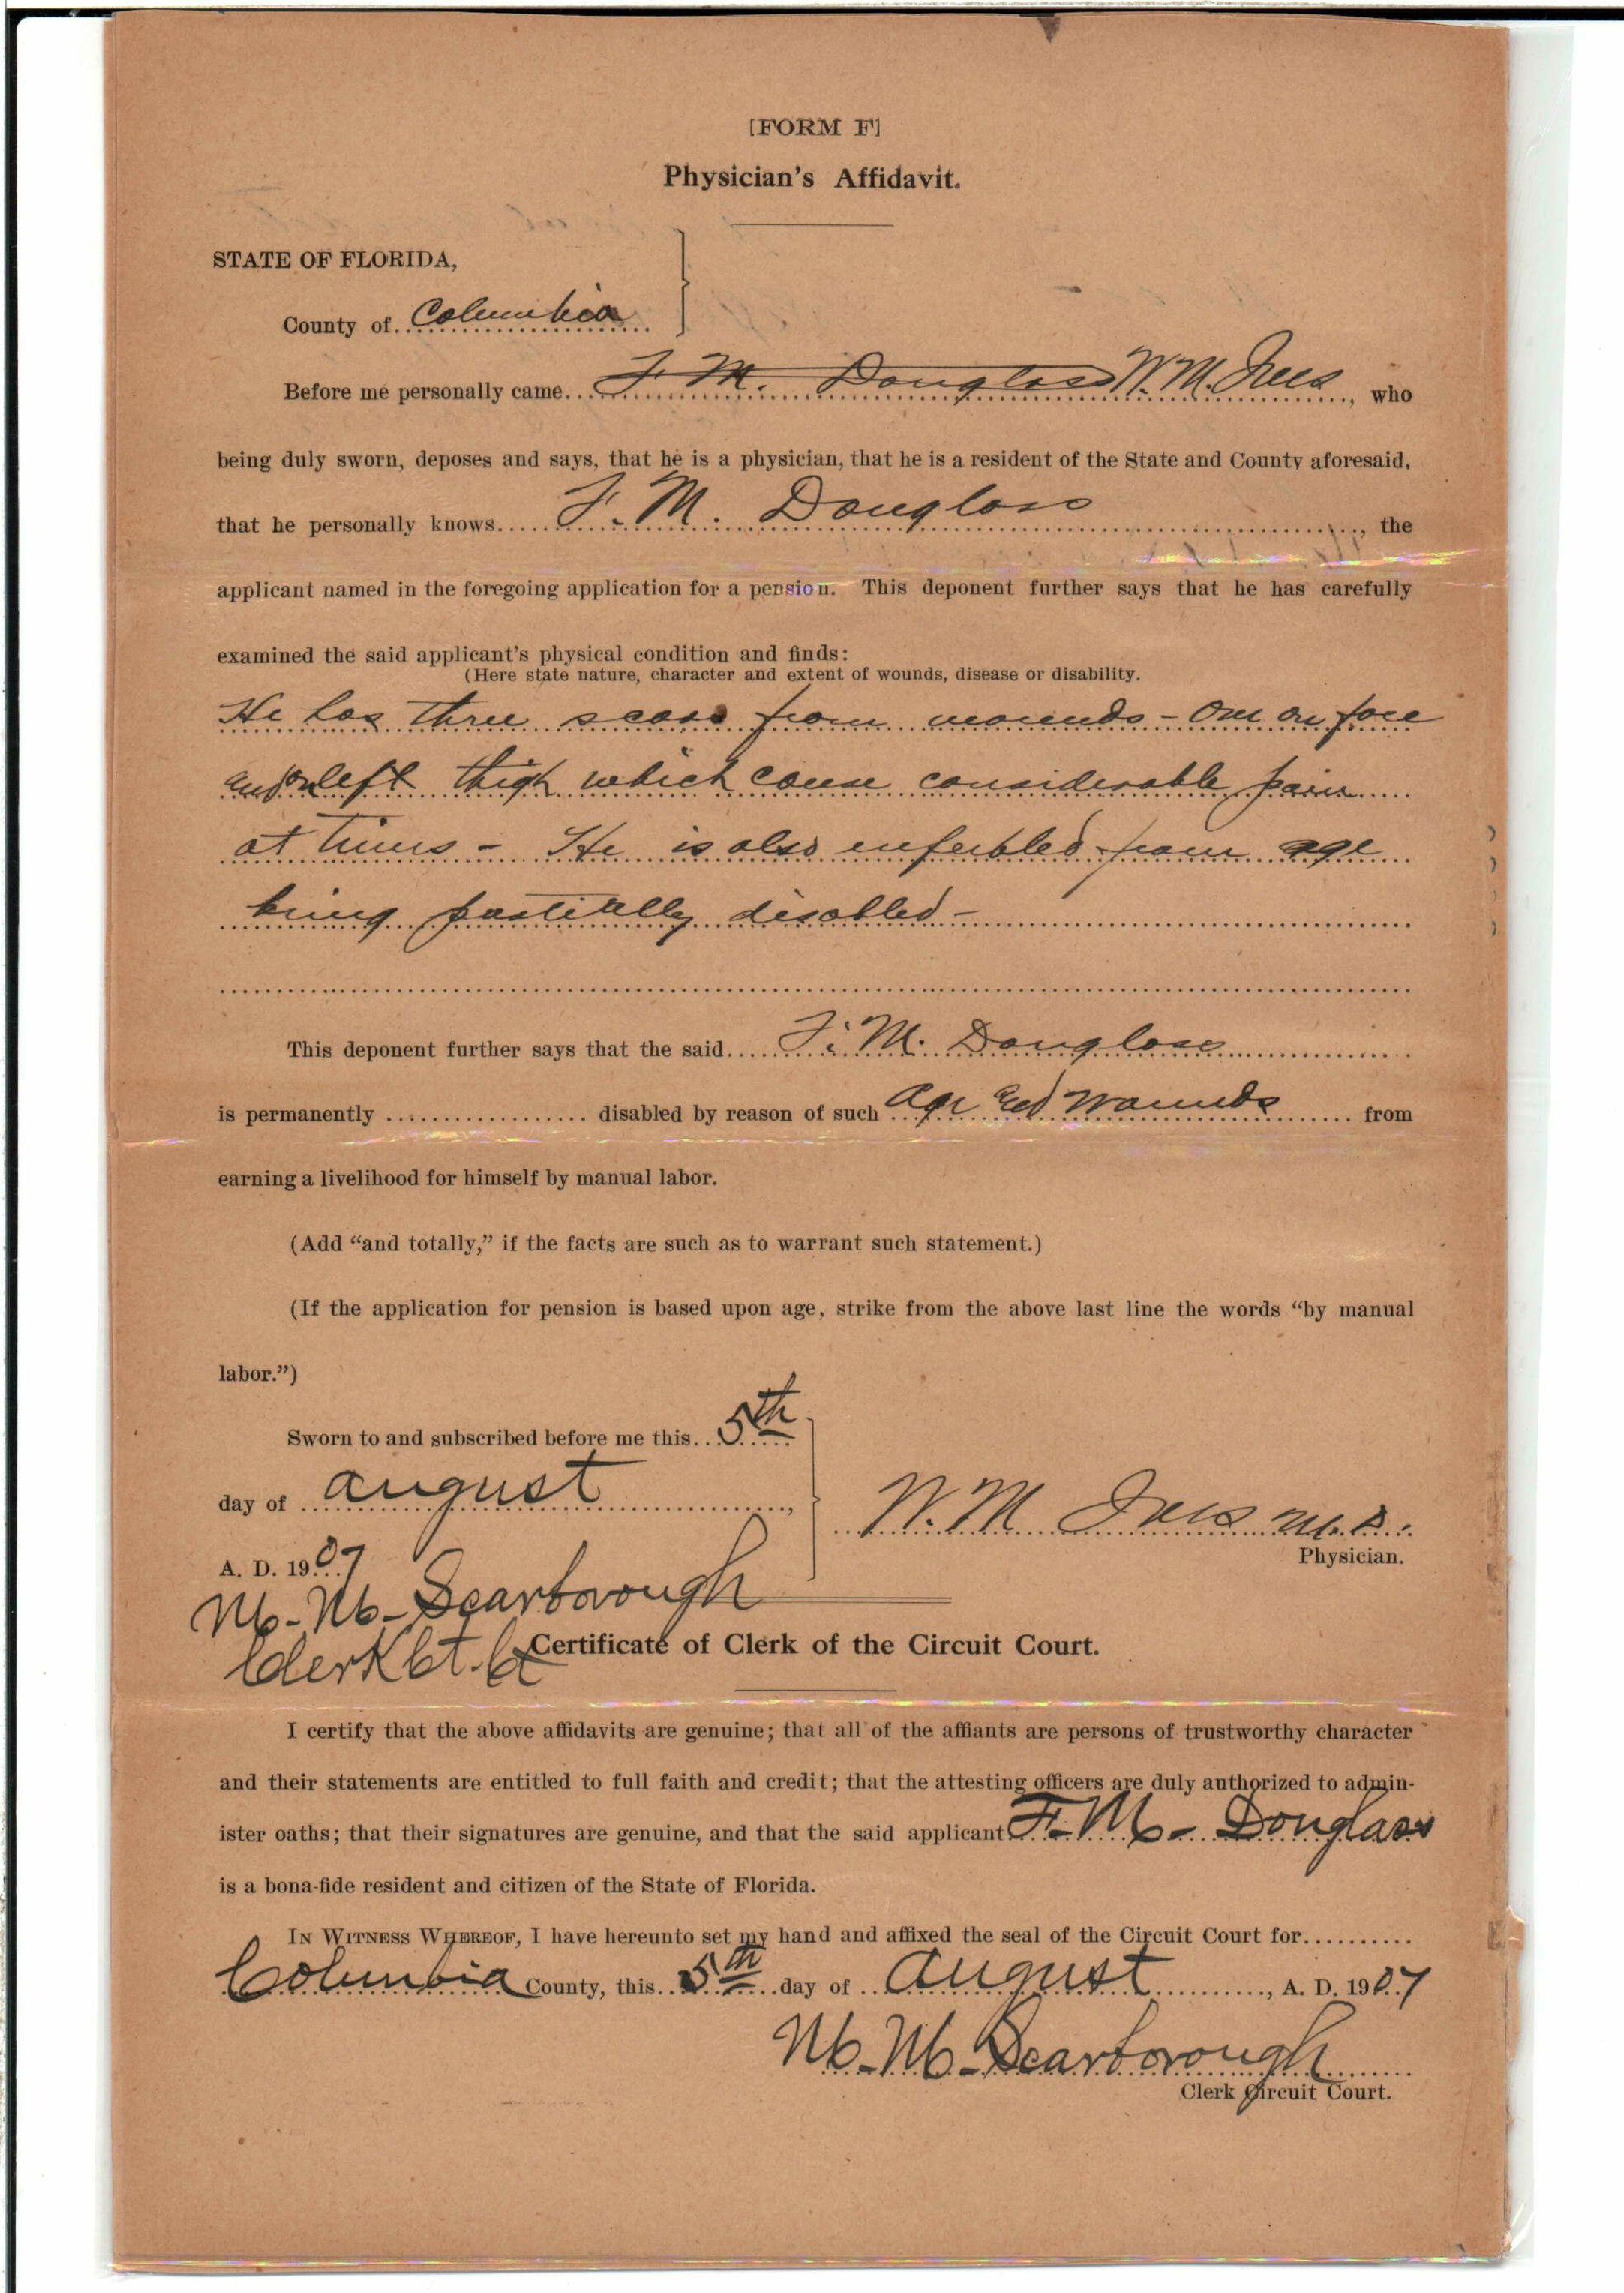 [FORM F]
Physician's Affidavit.
STATE OF FLORIDA,
County of Columbia
Before me personally came F. M. Douglass W. M. Ives, who
being duly sworn, deposes and says, that he is a physician, that he is a resident of the State and County aforesaid,
that he personally knows F. M. Douglass, the
applicant named in the foregoing application for a pension. This deponent further says that he has carefully
examined the said applicant's physical condition and finds:
(Here state nature, character and extent of wounds, disease or disability.
He has three scars from wounds - One on face
and on left thigh which cause considerable pain
at times - He is also enfeebled from age
being partially disabled -
This deponent further says that the said F. M. Douglass
is permanently disabled by reason of such age and wounds from
earning a livelihood for himself by manual labor.
(Add “and totally,” if the facts are such as to warrant such statement.)
(If the application for pension is based upon age, strike from the above last line the words “by manual
labor.”)
Sworn to and subscribed before me this 5th
day of August,
A. D. 1907
W. M. Ives M.D.
Physician.
M. M. Scarborough
Clerk Ct. Ct
Certificate of Clerk of the Circuit Court.
I certify that the above affidavits are genuine; that all of the affiants are persons of trustworthy character
and their statements are entitled to full faith and credit; that the attesting officers are duly authorized to admin-
ister oaths; that their signatures are genuine, and that the said applicant F. M. Douglass
is a bona-fide resident and citizen of the State of Florida.
IN WITNESS WHEREOF, I have hereunto set my hand and affixed the seal of the Circuit Court for
Columbia County, this 5th day of August, A. D. 1907
M. M. Scarborough
Clerk Circuit Court.